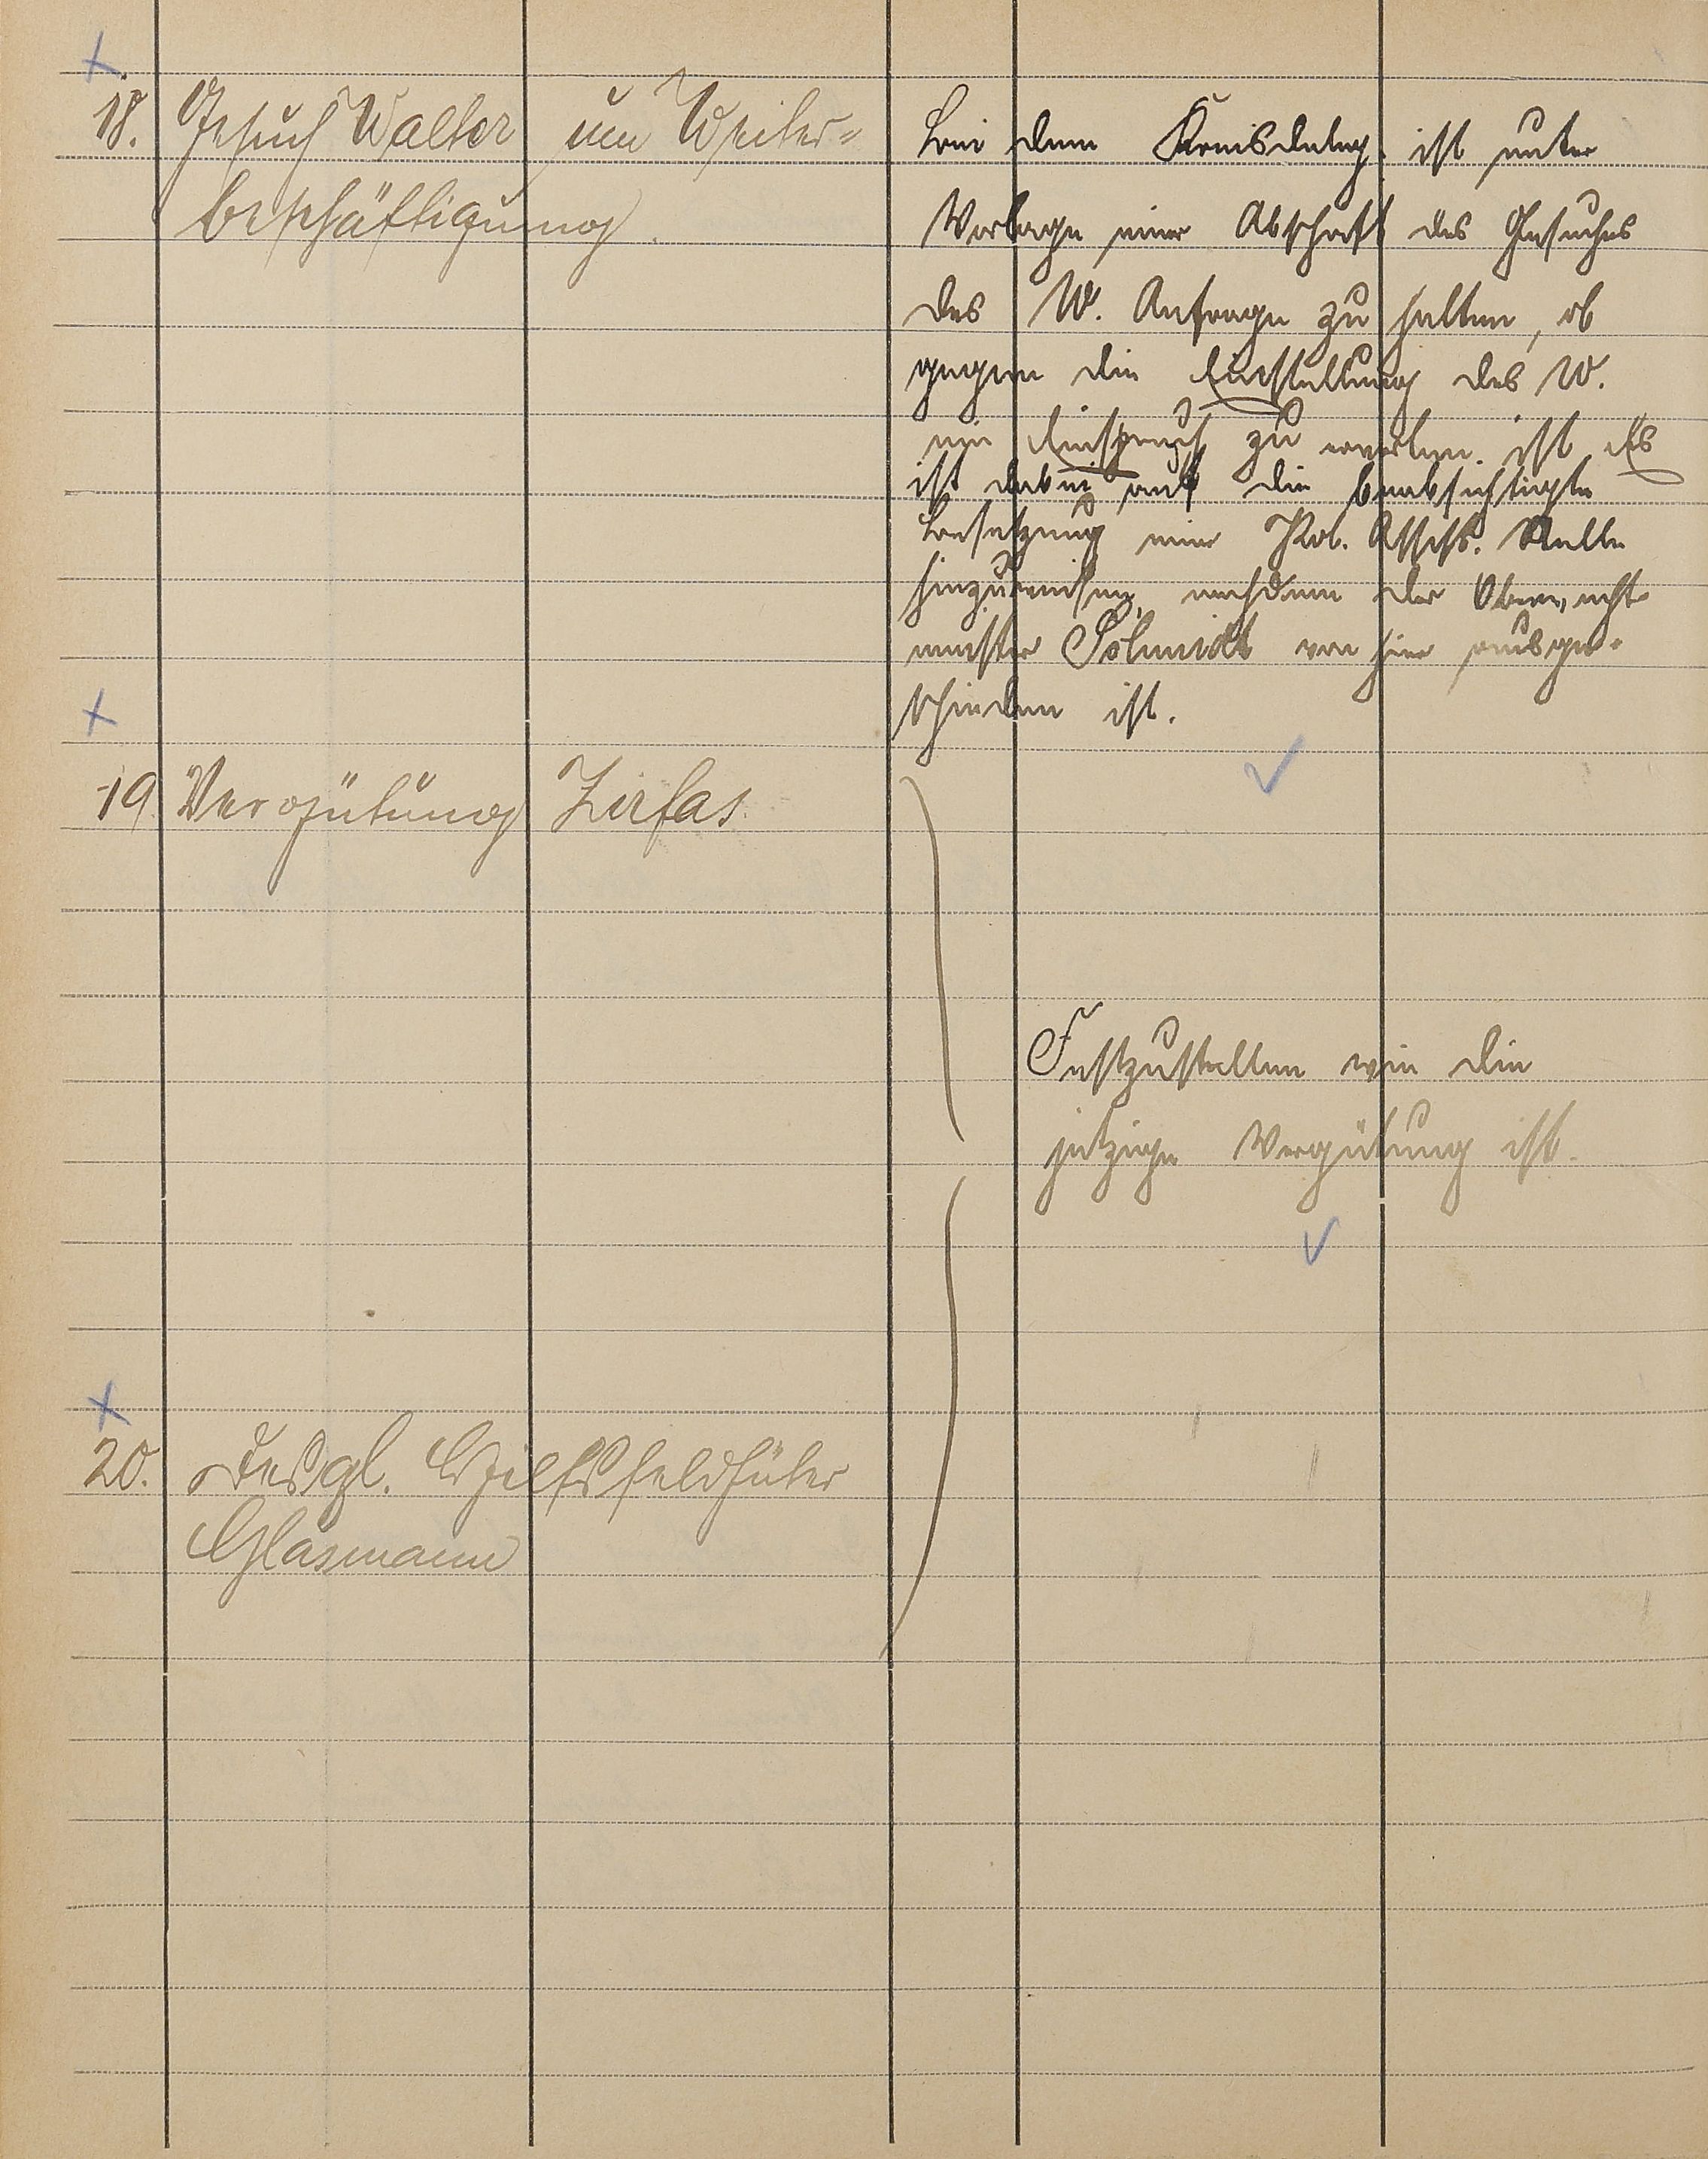 18. Gesuch Walter um Weiter=
beschäftigung.
bei dem Kreisdeleg. ist unter
Vorlage einer Abschrift des Gesuches
des W. Anfrage zu halten, ob
gegen die Einstellung des W.
ein Einspruch zu erwarten ist. Es
ist dabei auf die beabsichtigte
Besetzung einer Pol. Assist. Stelle
hinzuweisen, nachdem der
Schmidt von hier ausge=
schieden ist.
19. Vergütung Zirfas.
Festzustellen wie die
jetzige Vergütung ist.
20. Desgl. Hilfsfeldhüter
Glasmann